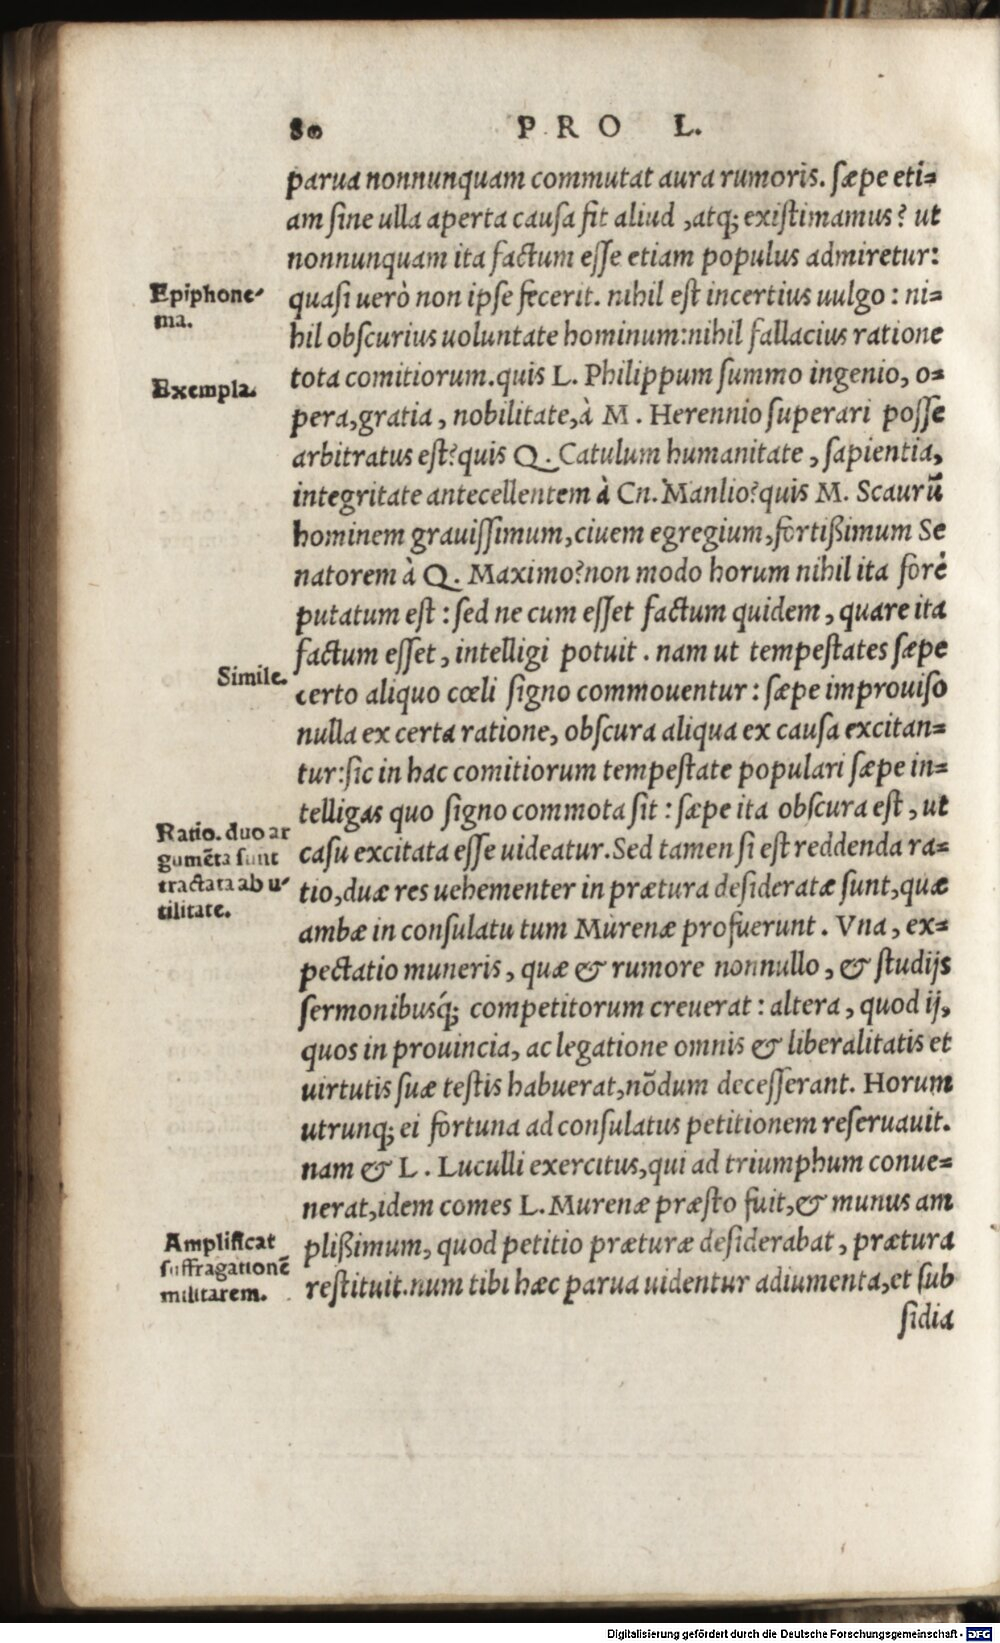 80 PRO L.
parua nonnunquam commutat aura rumoris. sæpe eti=
am sine ulla aperta causa fit aliud ,atq; existimamus? ut
nonnunquam ita factum esse etiam populus admiretur:
Epiphone-
ma.
quasi uerò non ipse fecerit. nihil est incertius uulgo : ni=
hil obscurius uoluntate hominum:nihil fallacius ratione
Exempla.
tota comitiorum.quis L. Philippum summo ingenio, o=
pera,gratia, nobilitate,à M. Herennio superari posse
arbitratus est?quis Q. Catulum humanitate, sapientia,
integritate antecellentem à Cn. Manlio?quis M. Scaurũ
hominem grauissimum,ciuem egregium,fortißimum Se
natorem à Q. Maximo?non modo horum nihil ita fore
putatum est : sed ne cum esset factum quidem, quare ita
factum esset, intelligi potuit. nam ut tempestates sæpe
Simile.
certo aliquo cœli signo commouentur : sæpe improuiso
nulla ex certa ratione, obscura aliqua ex causa excitan=
tur:sic in hac comitiorum tempestate populari sæpe in=
telligas quo signo commota sit : sæpe ita obscura est, ut
Ratio. duo ar
gumẽta sunt
tractata ab u-
tilitate.
casu excitata esse uideatur.Sed tamen si est reddenda ra=
tio,duæ res uehementer in prætura desideratæ sunt,quæ
ambæ in consulatu tum Murenæ profuerunt. Vna, ex=
pectatio muneris, quæ & rumore nonnullo, & studijs
sermonibusq́; competitorum creuerat : altera, quod ij,
quos in prouincia, ac legatione omnis & liberalitatis et
uirtutis suæ testis habuerat,nõdum decesserant. Horum
utrunq; ei fortuna ad consulatus petitionem reseruauit.
nam & L. Luculli exercitus,qui ad triumphum conue=
nerat,idem comes L. Murenæ præsto fuit,& munus am
Amplificat
suffragationẽ
militarem.
plißimum, quod petitio præturæ desiderabat, prætura
restituit.num tibi hæc parua uidentur adiumenta,et sub
sidia
Digitalisierung gefördert durch die Deutsche Forschungsgemeinschaft - DFG